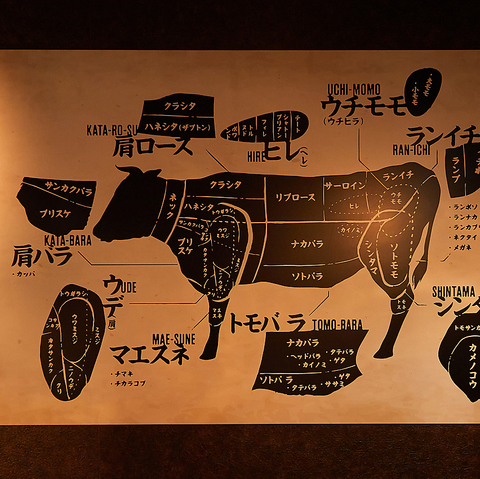 クラシタ
ハネシタ(ザブトン)
KATA-RO-SU
肩ロース
HIRE
ヒレ(ヘレ)
UCHI-MOMO
ウチモモ
(ウチヒラ)
ランイチ
RAN-ICHI
ランプ
・ランボソ
・ランナカ
・ランカブ
・ネクタイ
・メガネ
サンカクバラ
ブリスケ
KATA-BARA
肩バラ
・カッパ
ネック
クラシタ
ハネシタ
リブロース
サーロイン
ヒレ
カイノミ
ランイチ
ウチモモ
ブリスケ
ナカバラ
ソトバラ
シンタマ
ソトモモ
トモスネ
マエスネ
UDE
ウデ(肩)
トウガラシ
ウワミスジ
ミスジ
カタサンカク
ニノウデ
クリ
MAE-SUNE
マエスネ
・チマキ
・チカラコブ
トモバラ
TOMO-BARA
ナカバラ
・ヘッドバラ ・タテバラ
・カイノミ ・ゲタ
ソトバラ
・タテバラ ・ササミ ・ゲタ
SHINTAMA
シンタ
トモサンカ
カメノコウ